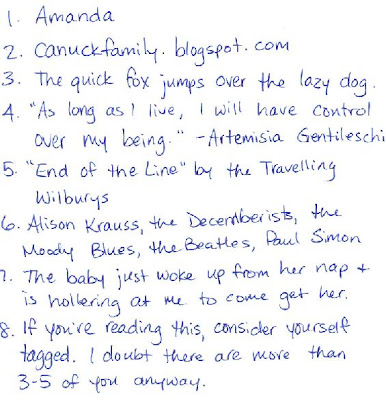 1. Amanda
2. Canuckfamily.blogspot.com
3. The quick fox jumps over the lazy dog.
4. "As long as I live, I will have control
over my being." -Artemisia Gentileschi
5. "End of the Line" by the Travelling
Wilburys
6. Alison Krauss, the Decemberists, the
Moody Blues, the Beatles, Paul Simon
7. The baby just woke up from her nap +
is hollering at me to come get her.
8. If you're reading this, consider yourself
tagged. I doubt there are more than
3-5 of you anyway.